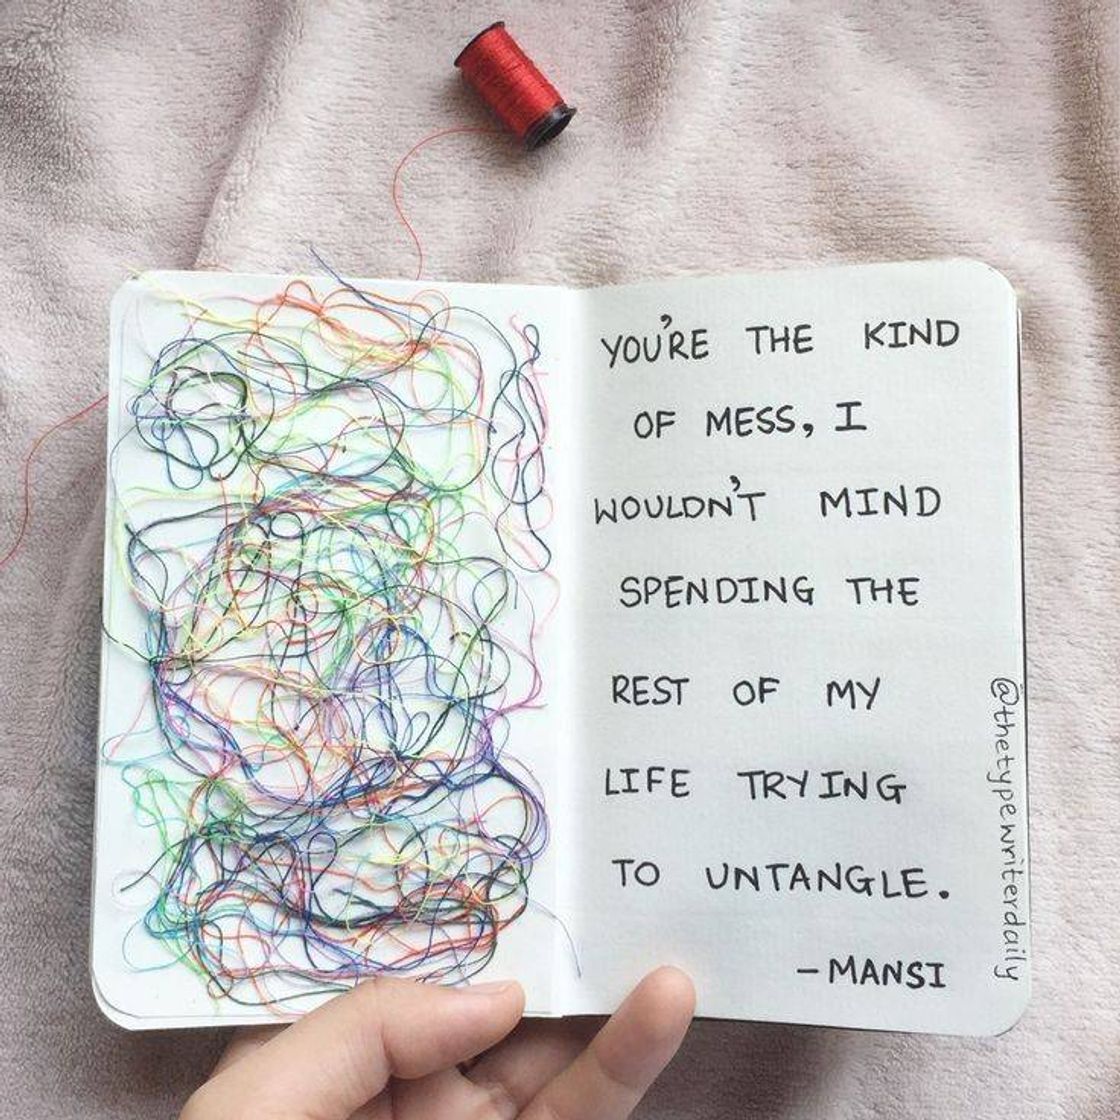 YOU'RE THE KIND
OF MESS, I
WOULDN'T MIND
SPENDING THE
REST OF MY
LIFE TRYING
TO UNTANGLE.
-MANSI
@thetypewriterdaily